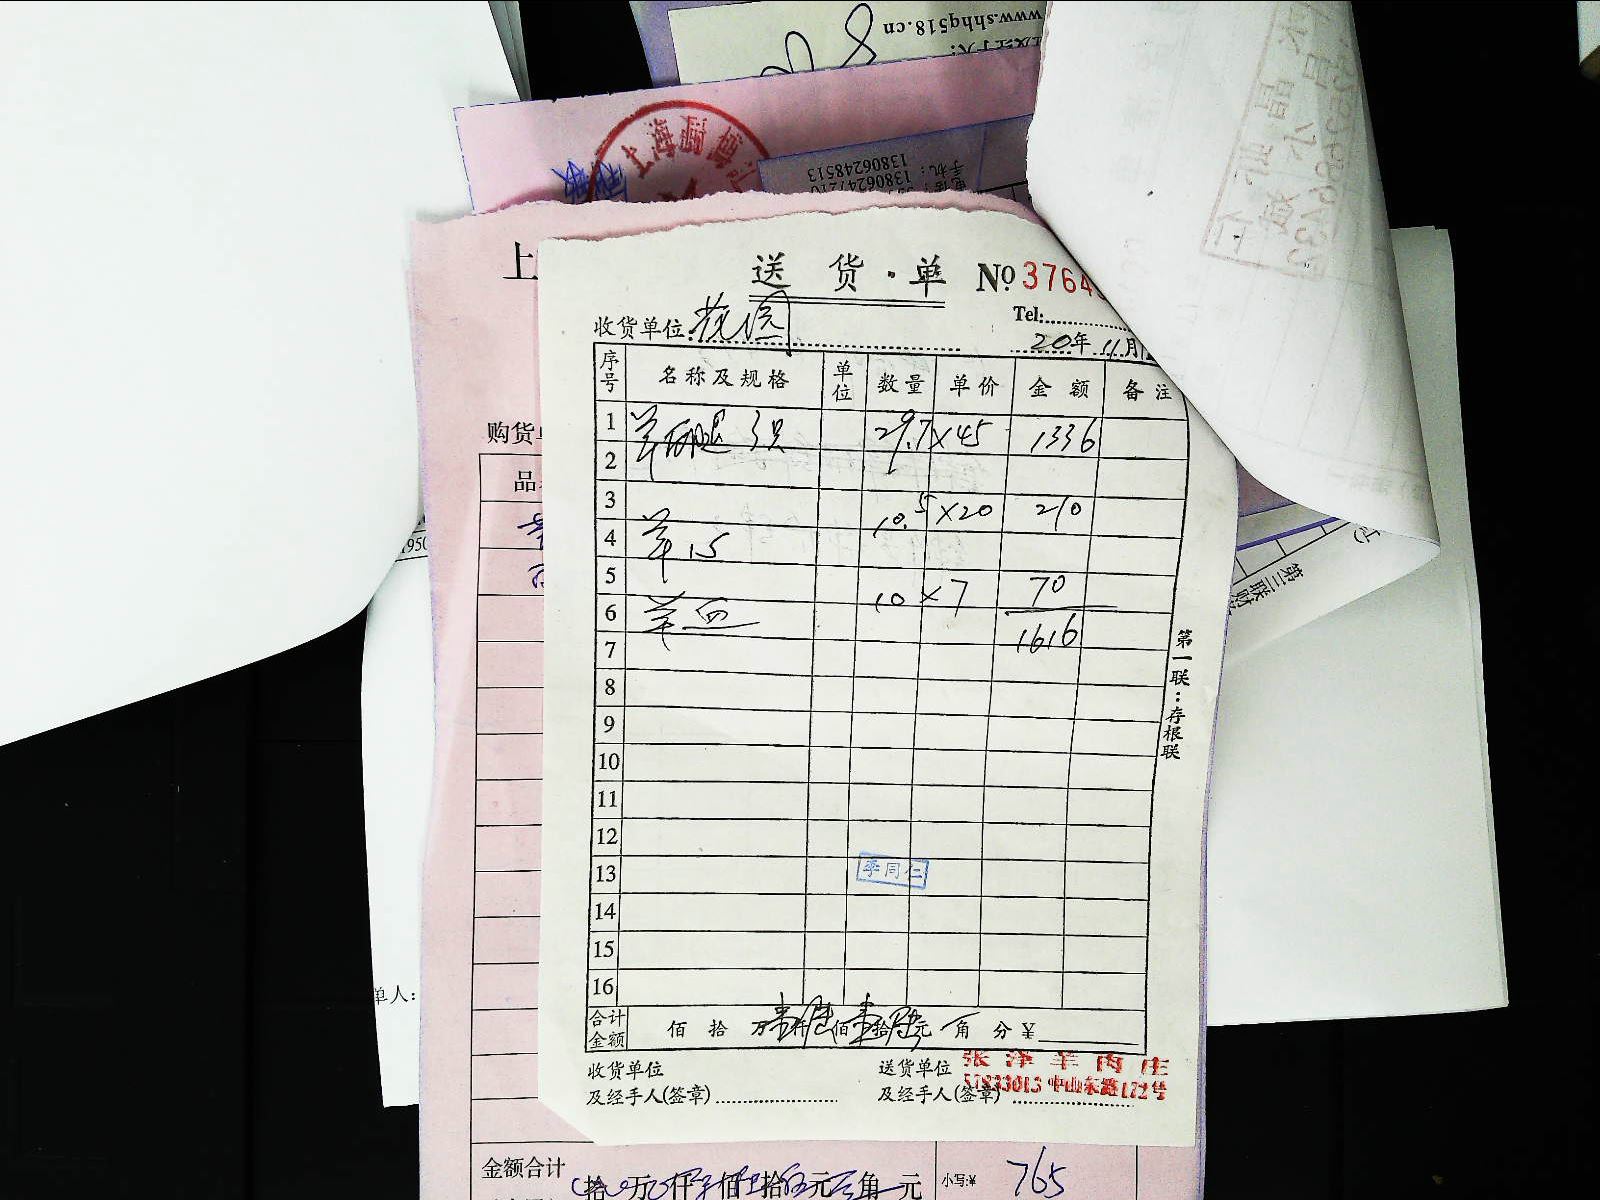 www.shhg518.cn
上海
手机: 13806248513
13806247210
上
送货·单 No 3764
Tel:
收货单位:
20年 11月
序号 名称及规格 单位 数量 单价 金额 备注
1 羊后腿 3只 29.7 × 45 1336
2
3 10.5 × 20 210
4 羊
5 10 × 7 70
6 羊血 1616
7
8
9
10
11
12
13
14
15
16
李同仁
合计金额 佰 拾 万壹仟陆佰壹拾陆元 角 分 ¥
收货单位及经手人(签章)
送货单位及经手人(签章)
张泽羊肉庄
57833013 中山东路172号
第一联:存根联
第三联财
购货单
品
1950
单人:
金额合计 拾 万 仟 佰 拾 元 角 元 小写:¥ 765